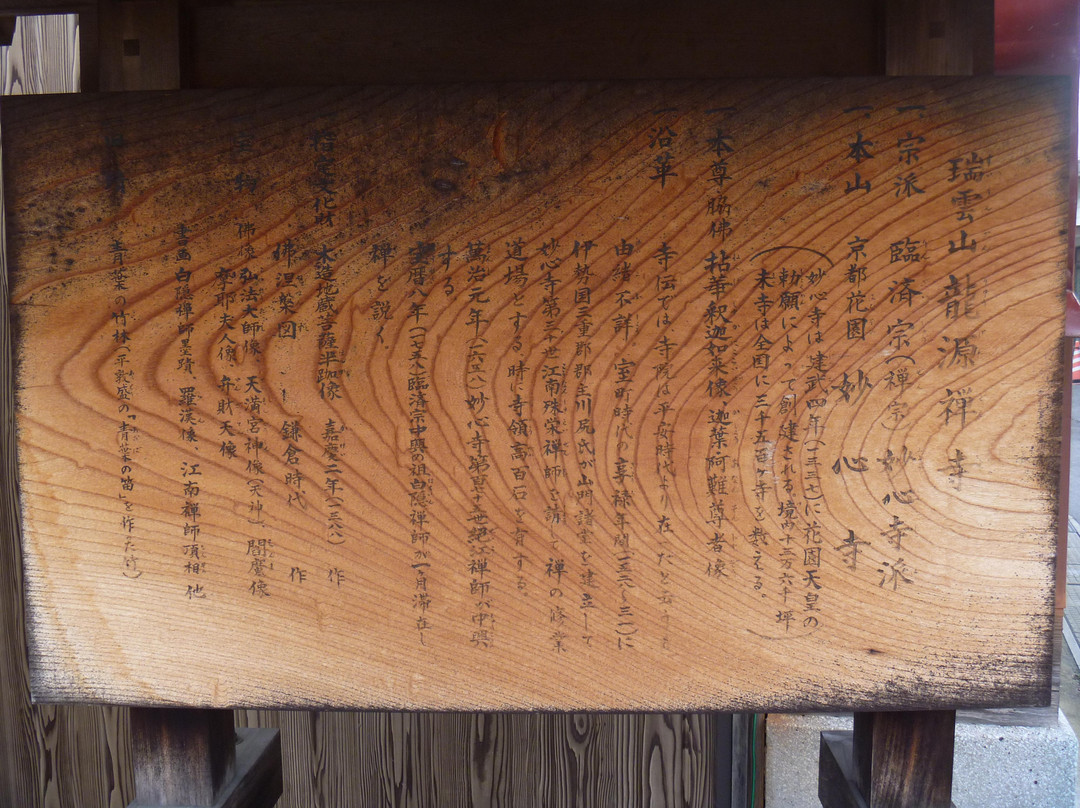 瑞雲山 龍源禅寺
一、宗派 臨済宗(禅宗)妙心寺派
一、本山 京都花園 妙心寺
(妙心寺は建武四年(一三三七)に花園天皇の
勅願によって創建される。境内十三万六千坪
末寺は全国に三千五百ヶ寺を数える。)
一、本尊脇佛 拈華釈迦如来像 迦葉阿難尊者像
一、沿革 寺伝では、寺院は平安時代より在
由緒不詳。室町時代の享禄年間(一五二八〜三一)に
伊勢国三重郡郡主川尻氏が山門諸堂を建立して
妙心寺第三十世江南殊栄禅師を請して禅の修業
道場とする。時に寺領高百石を有する。
萬治元年(一六五八)妙心寺第 世絶江禅師が中興
する。
宝暦八年(一七五八)臨済宗中興の祖白隠禅師が一ヶ月滞在し
禅を説く
一、指定文化財 木造地蔵菩薩半跏像 嘉慶二年(一三八八)作
佛涅槃図 鎌倉時代 作
一、宝物 佛像 弘法大師像、天満宮神像(天神)、閻魔像
摩耶夫人像、弁財天像
書画 白隠禅師墨蹟、羅漢像、江南禅師頂相 他
青葉の竹林(平敦盛の「青葉の笛」を作った竹)